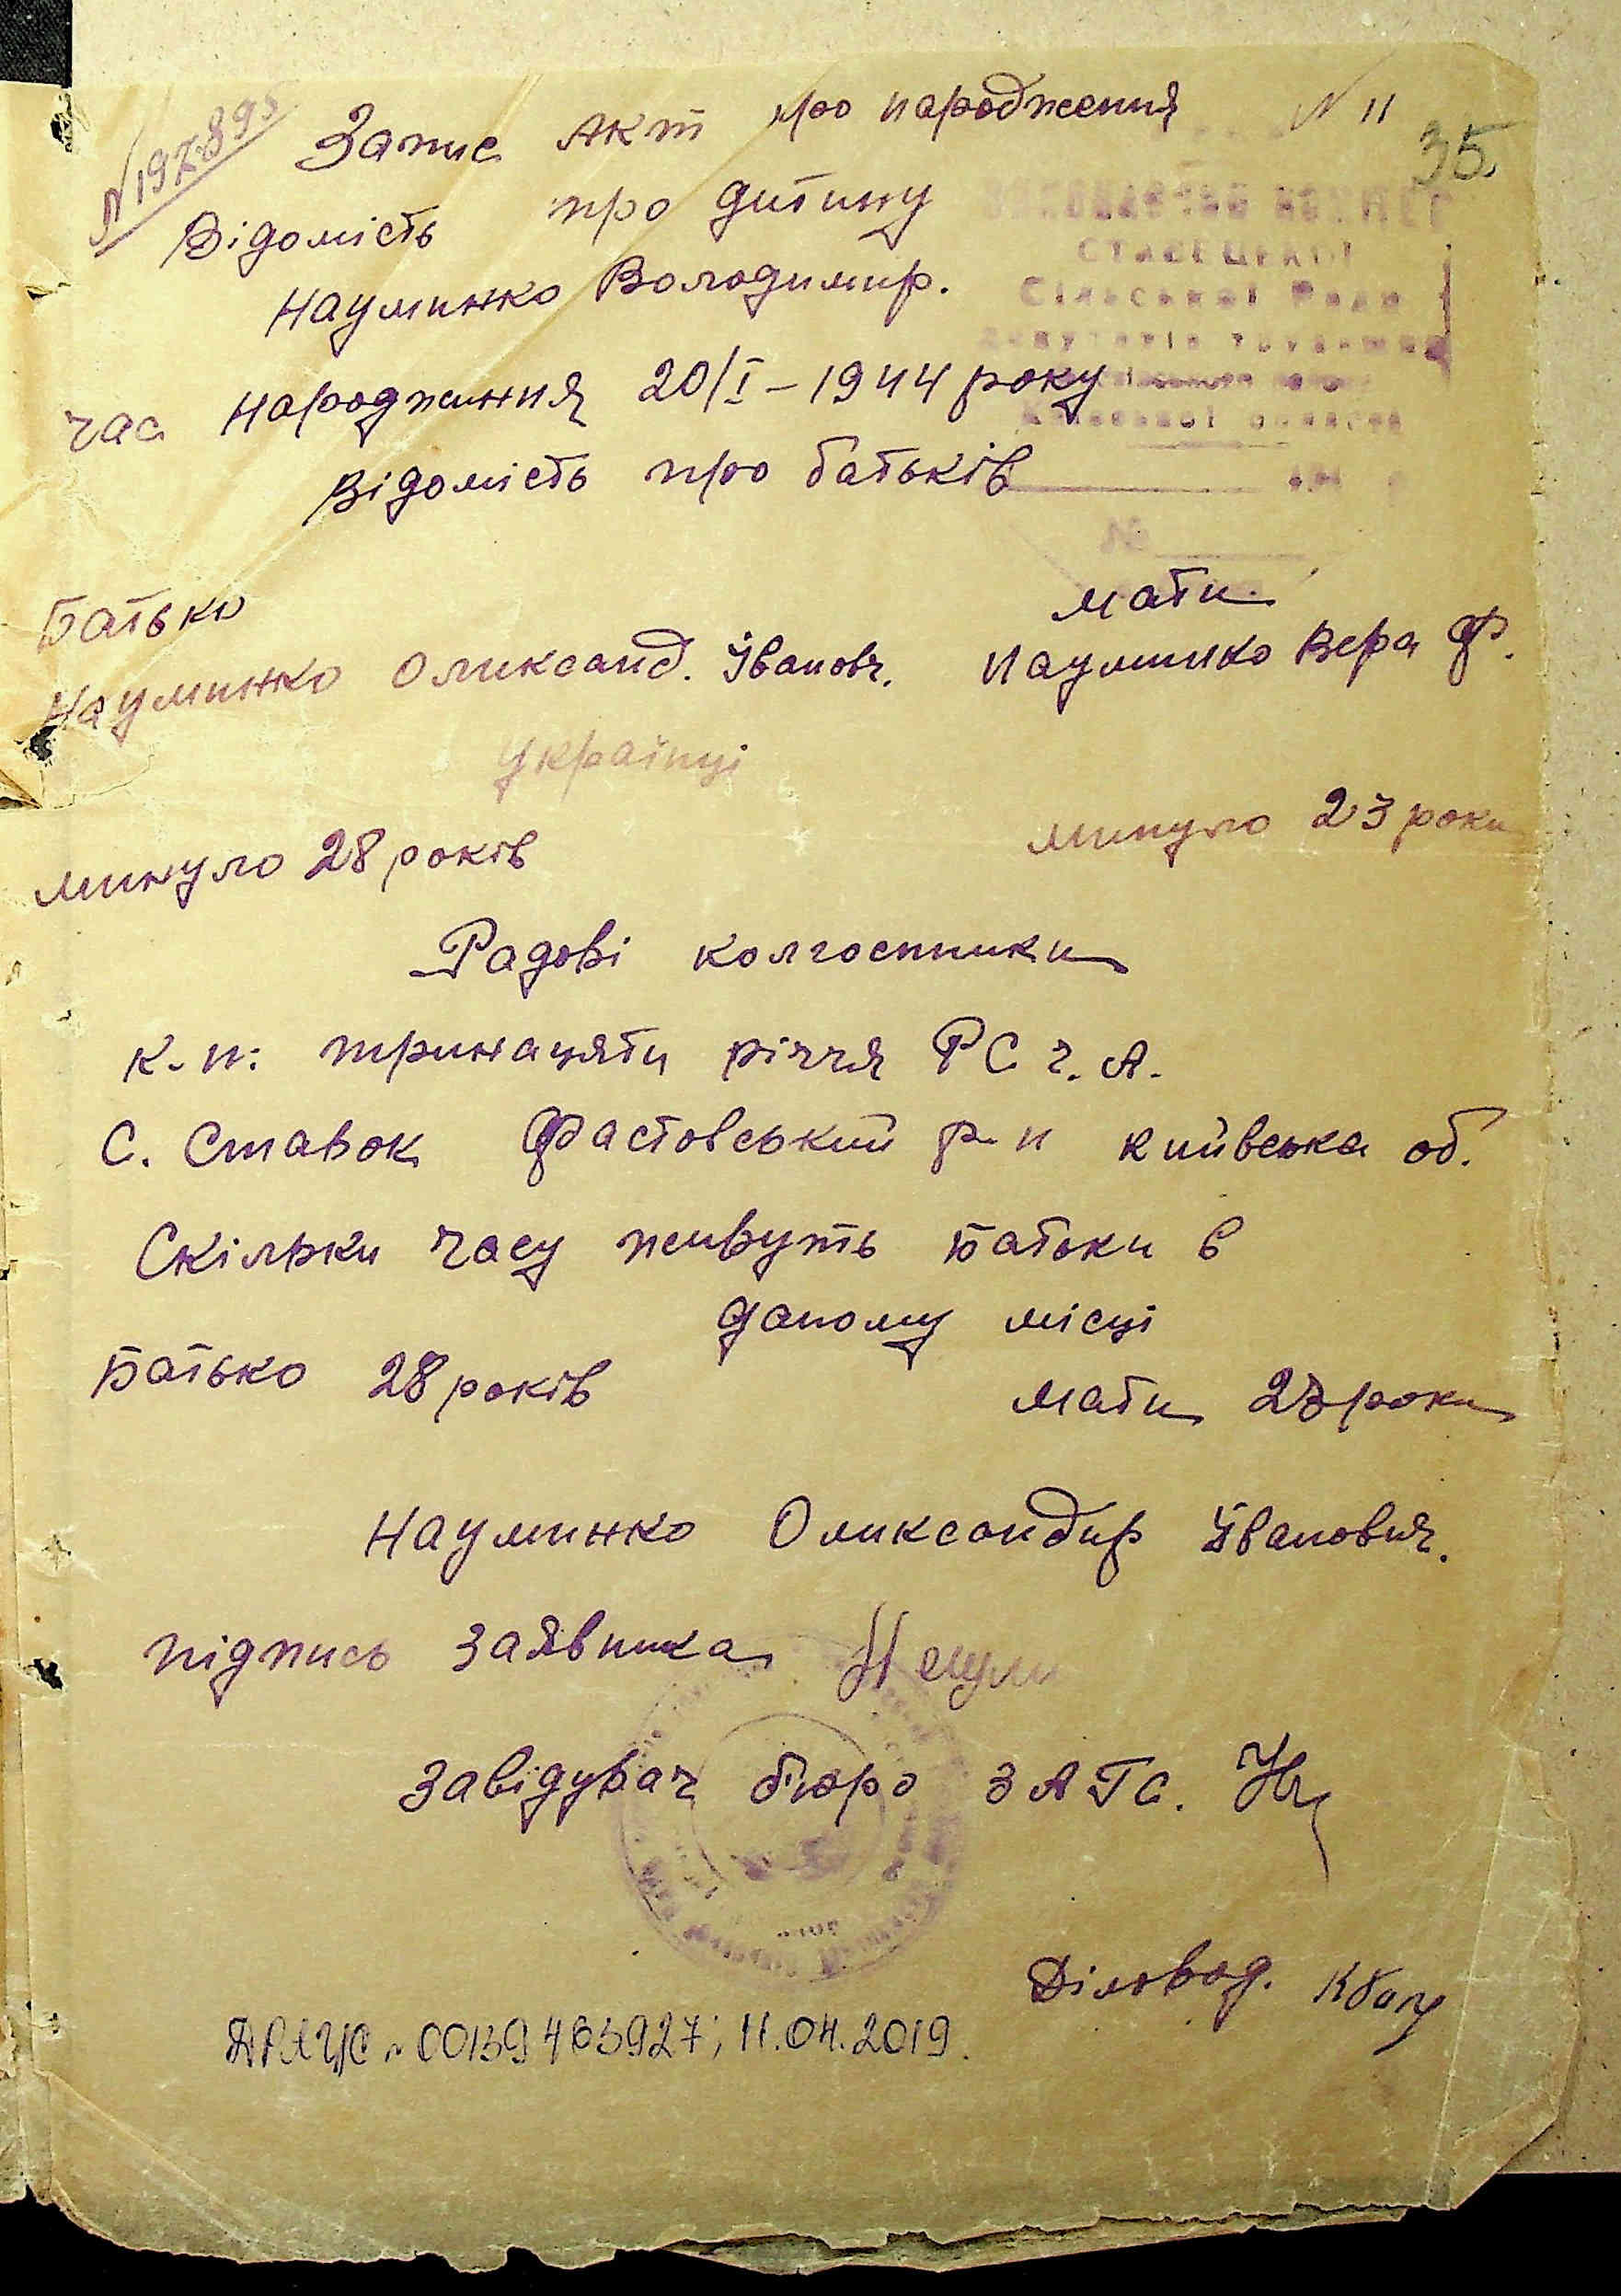 N 197895
Запис Акт про народження N 11
35.
Відомість про дитину
Науминко Володимир.
Ставецької
Сільської Ради
час народження 20/I – 1944 року
Київської области
Відомість про батьків
№
Батько мати
Науминко Олександ. Іванович. Науминко Вера Ф.
Українці
минуло 28 років минуло 23 роки
Радові колгоспники
к.п: тринацяти річчя РС ч. А.
С. Ставок Фастовський р-н київська об.
Скільки часу живуть батьки в
даному місці
Батько 28 років мати 23 роки
Науминко Олександир Іванович.
підпись заявника Наум
Завідувач бюро ЗАГС.
Діловод.
ДРАЦС N 00139463927; 11.04.2019.